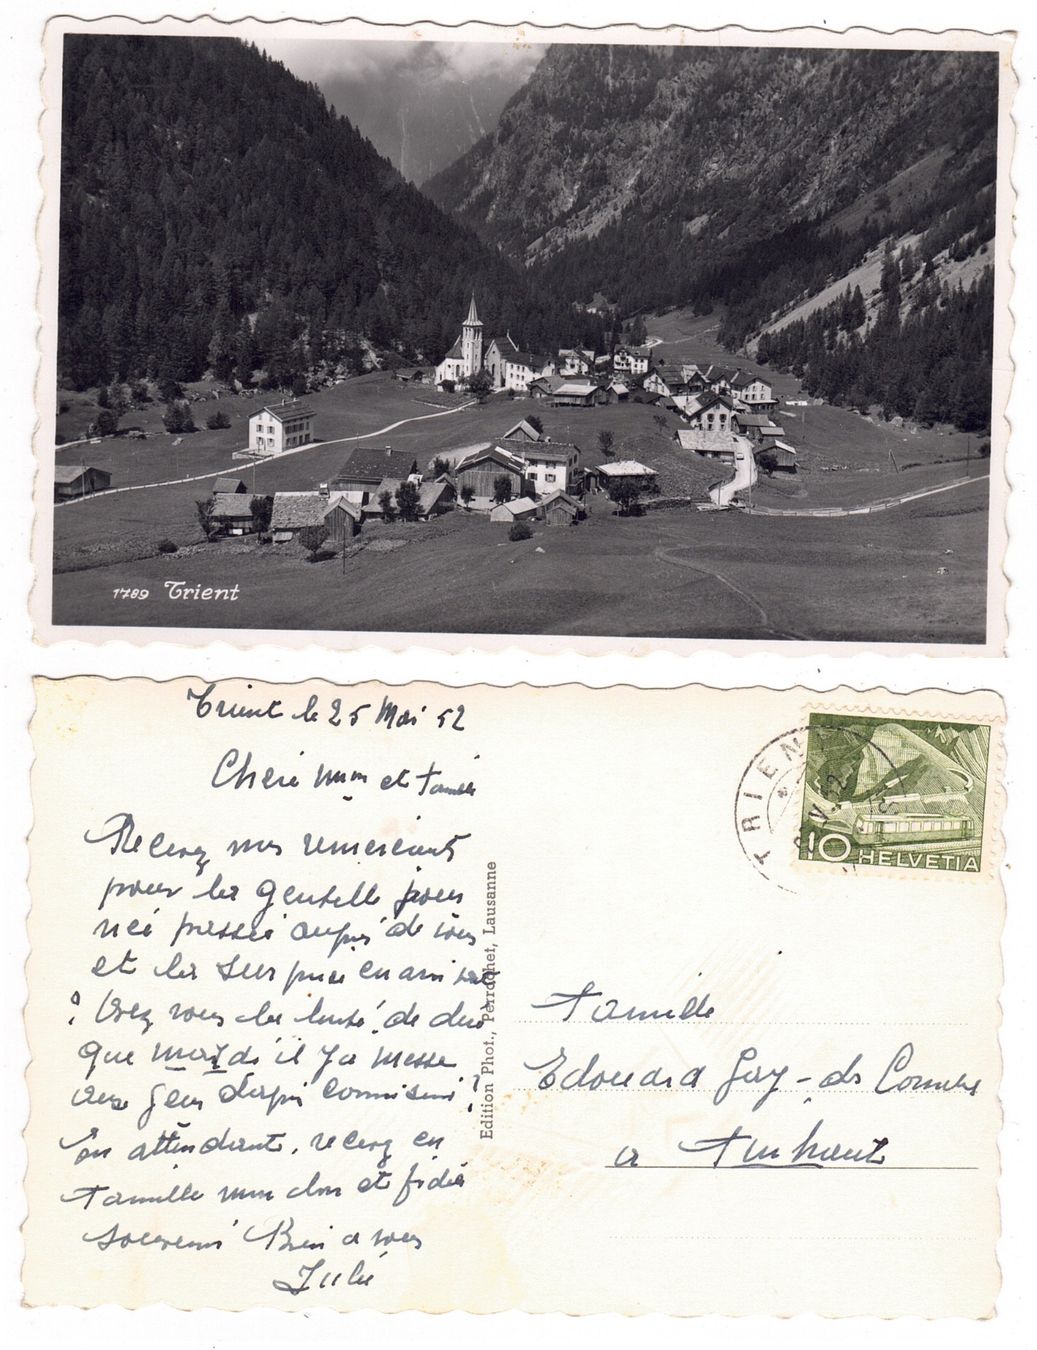 1789 Trient
Trient le 25 Mai 52
et famille
Recevez mes remerciements
pour la gentille jour
née passée auprès de vous
et la surprise en arrivant
? vous la bonté, de dire
que mardi il y a messe
En attendant, recevez en
famille mon bon et fidèle
souvenir Bien a vous
Julie
Edition Phot., Perrochet, Lausanne
TRIENT
10 HELVETIA
Famille
Edouard Gay-des Combes
a Finhaut